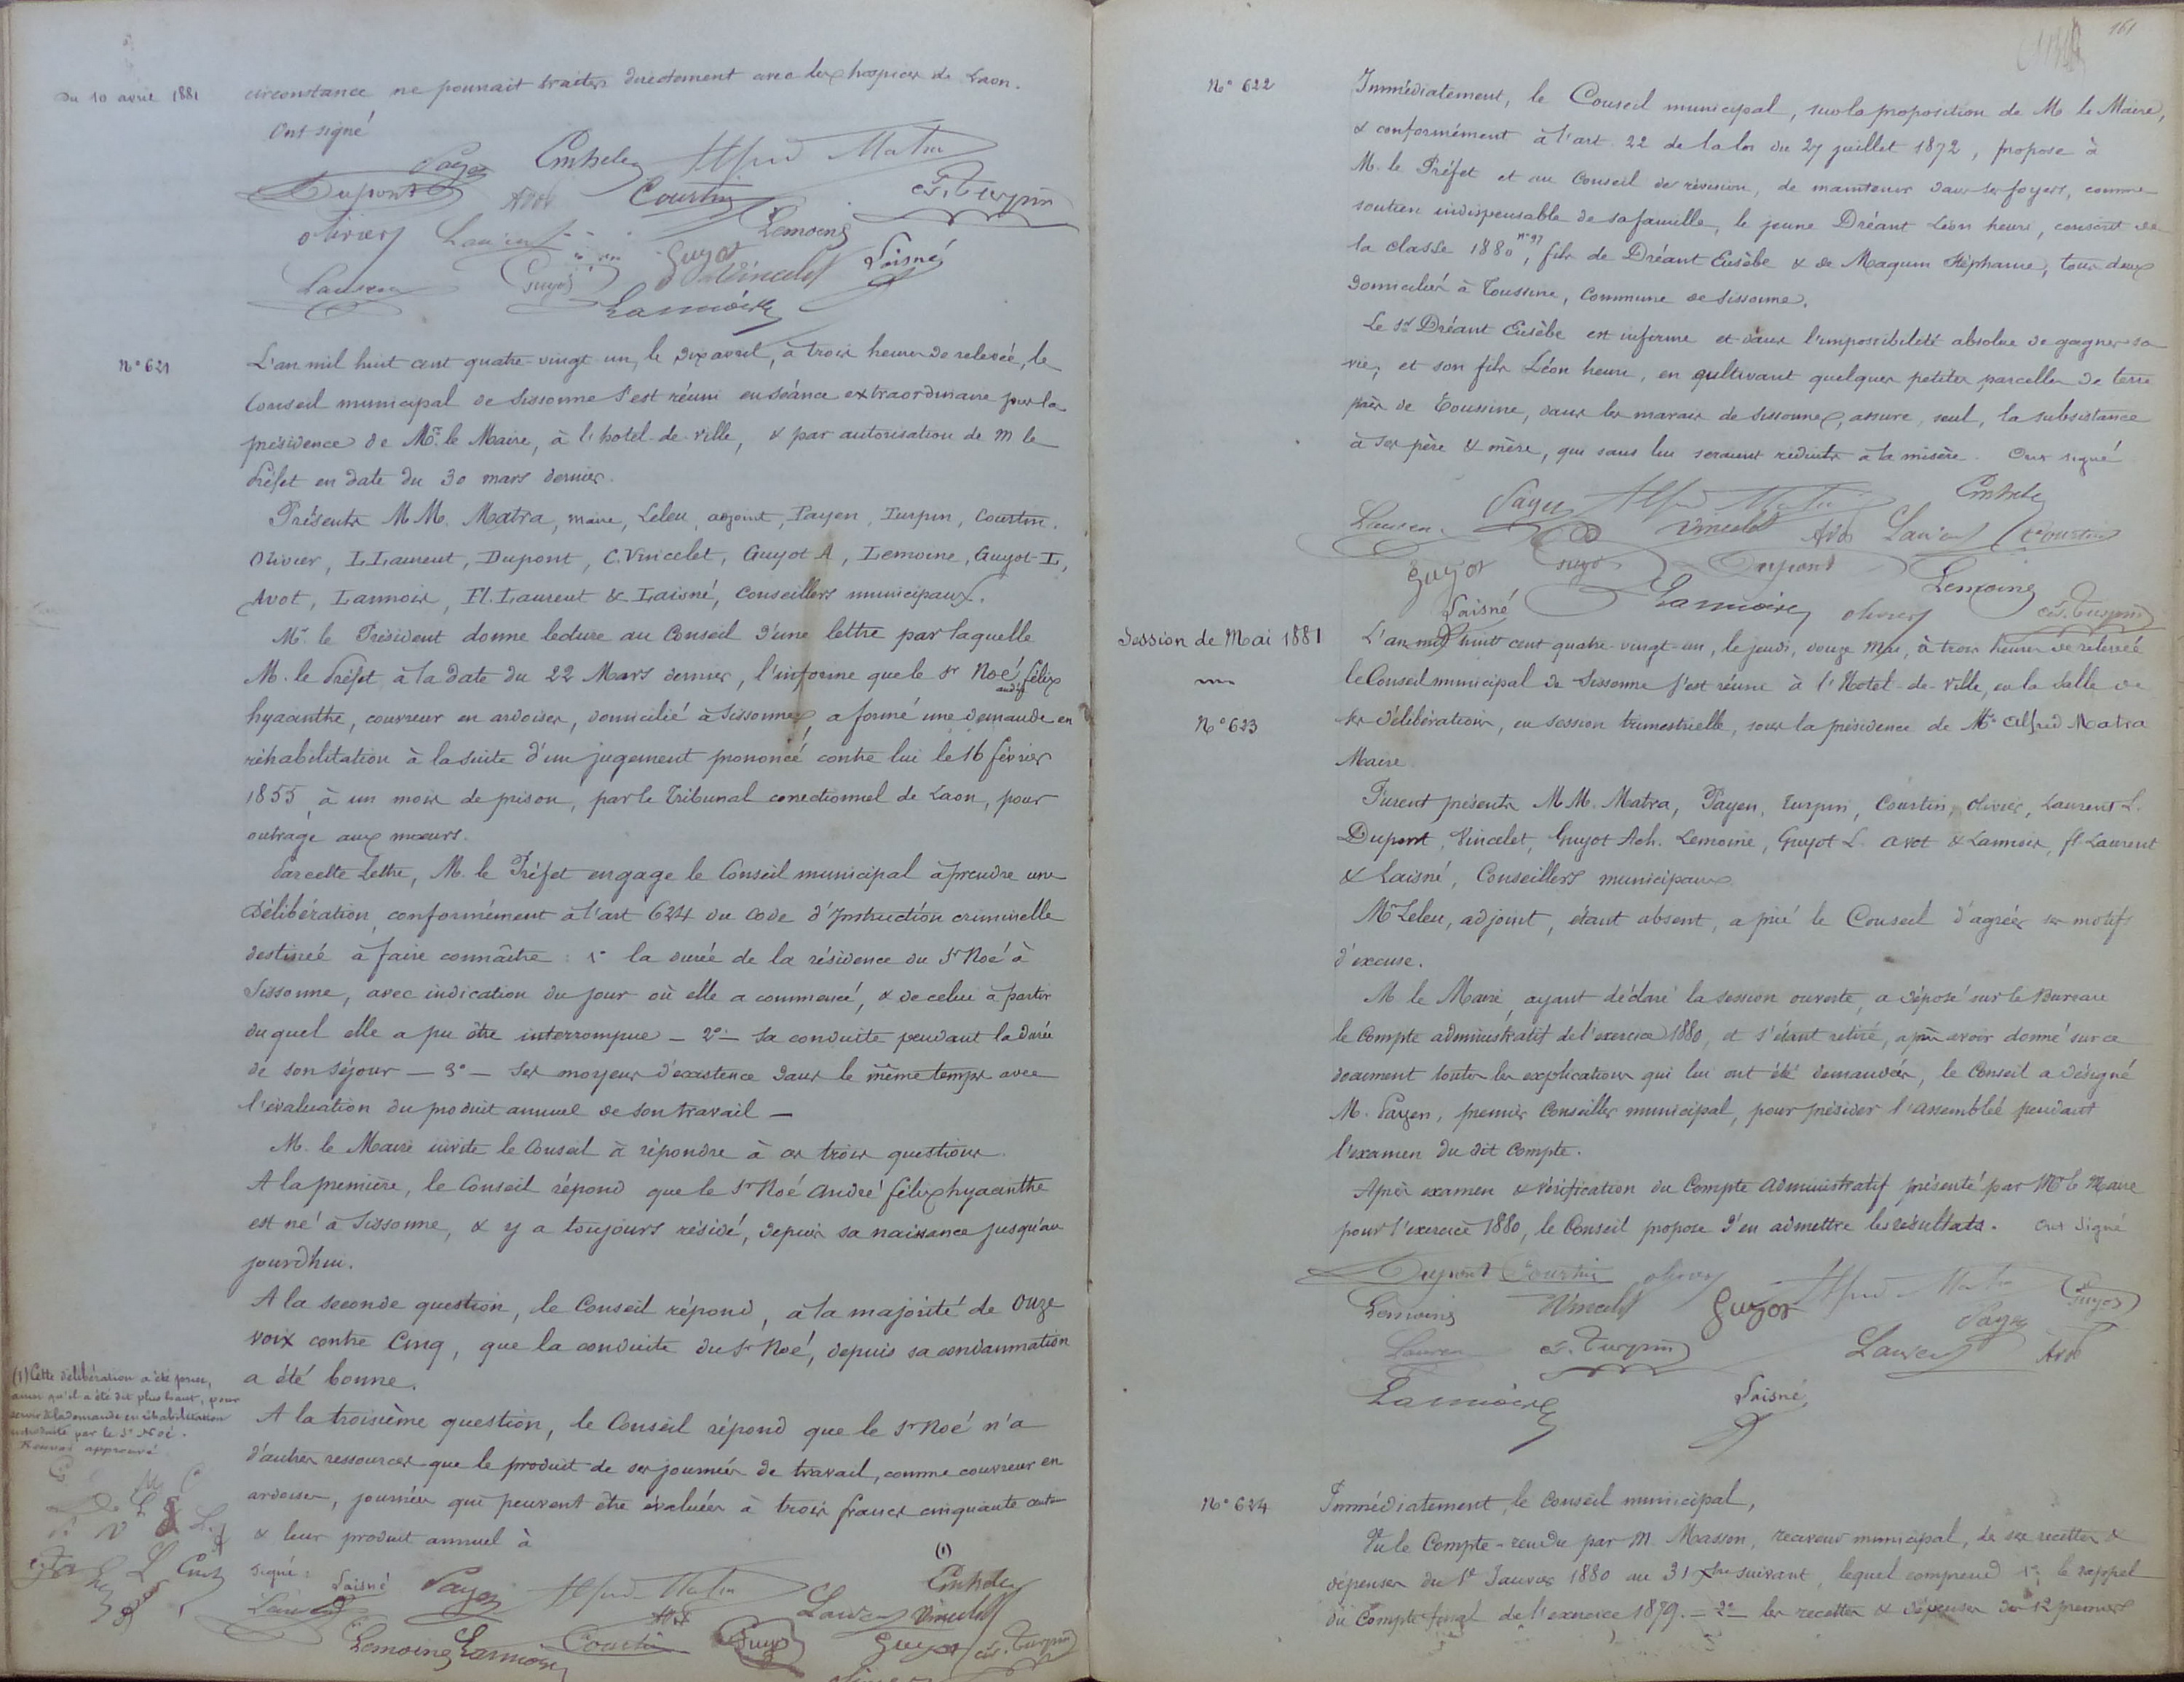 Du 10 avril 1881
circonstance ne pourrait traiter directement avec les hospices de Laon.
Ont signé
Payen Alfred Matra
Dupont Avot Courtin Cs. Turpin
Olivier Laurent Lemoine
Guyot Guyot Vincelet Laisné
Laurent Lannois
N° 621
L'an mil huit cent quatre-vingt-un, le dix avril, à trois heures de relevée, le
Conseil municipal de Sissonne s'est réuni en séance extraordinaire sous la
présidence de Mr. le Maire, à l'hotel-de-ville, & par autorisation de M le
Préfet en date du 30 mars dernier.
Présents MM. Matra, maire, Leleu, adjoint, Payen, Turpin, Courtin,
Olivier, L Laurent, Dupont, C. Vincelet, Guyot A, Lemoine, Guyot L,
Avot, Lannois, Fl. Laurent & Laisné, Conseillers municipaux.
Mr. le Président donne lecture au Conseil d'une lettre par laquelle
M. le Préfet à la date du 22 Mars dernier, l'informe que le sr Noé félix
andré
hyacinthe, couvreur en ardoises, domicilié à Sissonne, a formé une demande en
réhabilitation à la suite d'un jugement prononcé contre lui le 16 février
1855, à un mois de prison, par le Tribunal correctionnel de Laon, pour
outrage aux mœurs.
Par cette lettre, M. le Préfet engage le Conseil municipal à prendre une
délibération, conformément à l'art 624 du Code d'Instruction criminelle
destinée à faire connaître : 1° la durée de la résidence du Sr Noé à
Sissonne, avec indication du jour où elle a commencé, & de celui à partir
duquel elle a pu être interrompue — 2° — Sa conduite pendant la durée
de son séjour — 3° — Ses moyens d'existence dans le même temps avec
l'évaluation du produit annuel de son travail —
M. le Maire invite le Conseil à répondre à ces trois questions.
A la première, le Conseil répond que le Sr Noé André félix hyacinthe
est né à Sissonne, & y a toujours résidé, depuis sa naissance jusqu'au
jourd'hui.
A la seconde question, le Conseil répond, à la majorité de onze
voix contre Cinq, que la conduite du Sr Noé, depuis sa condamnation
a été bonne.
A la troisième question, le Conseil répond que le Sr Noé n'a
d'autres ressources que le produit de ses journées de travail, comme couvreur en
ardoises, journées qui peuvent être évaluées à trois francs cinquante
& leur produit annuel à
(1)
signé :
(1) Cette délibération a été prise,
ainsi qu'il a été dit plus haut, pour
servir à la demande en réhabilitation
introduite par le Sr Noé.
Renvoi approuvé
Laisné Payen Alfred Matra
Laurent Avot Laurent Vincelet
Lemoine Lannois Courtin Guyot Guyot Cs. Turpin
161
N° 622
Immédiatement, le Conseil municipal, sur la proposition de M. le Maire,
& conformément à l'art. 22 de la loi du 27 juillet 1872, propose à
M. le Préfet et au Conseil de révision, de maintenir dans ses foyers, comme
soutien indispensable de sa famille, le jeune Dréant Léon henri, conscrit de
la classe 1880, n° 97, fils de Dréant Eusèbe & de Maguin Stéphanie, tous deux
domiciliés à Toussine, Commune de Sissonne.
Le sr Dréant Eusèbe est infirme et dans l'impossibilité absolue de gagner sa
vie, et son fils Léon henri, en cultivant quelques petites parcelles de terre
près de Toussine, dans les marais de Sissonne, assure, seul, la subsistance
à ses père & mère, qui sans lui seraient réduits à la misère. Ont signé
Payen Alfred Matra
Laurent Vincelet Avot Laurent Courtin
Guyot Guyot Dupont Lemoine
Laisné Lannois Olivier Cs. Turpin
Session de Mai 1881
L'an mil huit cent quatre-vingt-un, le jeudi, douze Mai, à trois heures de relevée
le Conseil municipal de Sissonne s'est réuni à l'Hotel-de-Ville, en la Salle de
N° 623
ses délibérations, en session trimestrielle, sous la présidence de Mr. Alfred Matra
Maire.
Furent présents MM. Matra, Payen, Turpin, Courtin, Olivier, Laurent L.
Dupont, Vincelet, Guyot Ach. Lemoine, Guyot L. Avot & Lannois, fl Laurent
& Laisné, Conseillers municipaux.
Mr Leleu, adjoint, étant absent, a prié le Conseil d'agréer ses motifs
d'excuse.
M. le Maire, ayant déclaré la session ouverte, a déposé sur le Bureau
le Compte administratif de l'exercice 1880, et s'étant retiré, après avoir donné sur ce
document toutes les explications qui lui ont été demandées, le Conseil a désigné
M. Payen, premier Conseiller municipal, pour présider l'assemblée pendant
l'examen du dit Compte.
Après examen & vérification du Compte administratif présenté par Mr le Maire
pour l'exercice 1880, le Conseil propose d'en admettre les résultats. Ont signé
Dupont Courtin Olivier Alfred Matra Guyot
Lemoine Vincelet Guyot Payen
Laurent Cs. Turpin Laurent Avot
Lannois Laisné
N° 624
Immédiatement, le Conseil municipal,
Vu le Compte-rendu par M. Masson, receveur municipal, de ses recettes &
dépenses du 1er Janvier 1880 au 31 Xbre suivant, lequel comprend 1° le rappel
du Compte final de l'exercice 1879. — 2° — les recettes & dépenses des 12 premiers